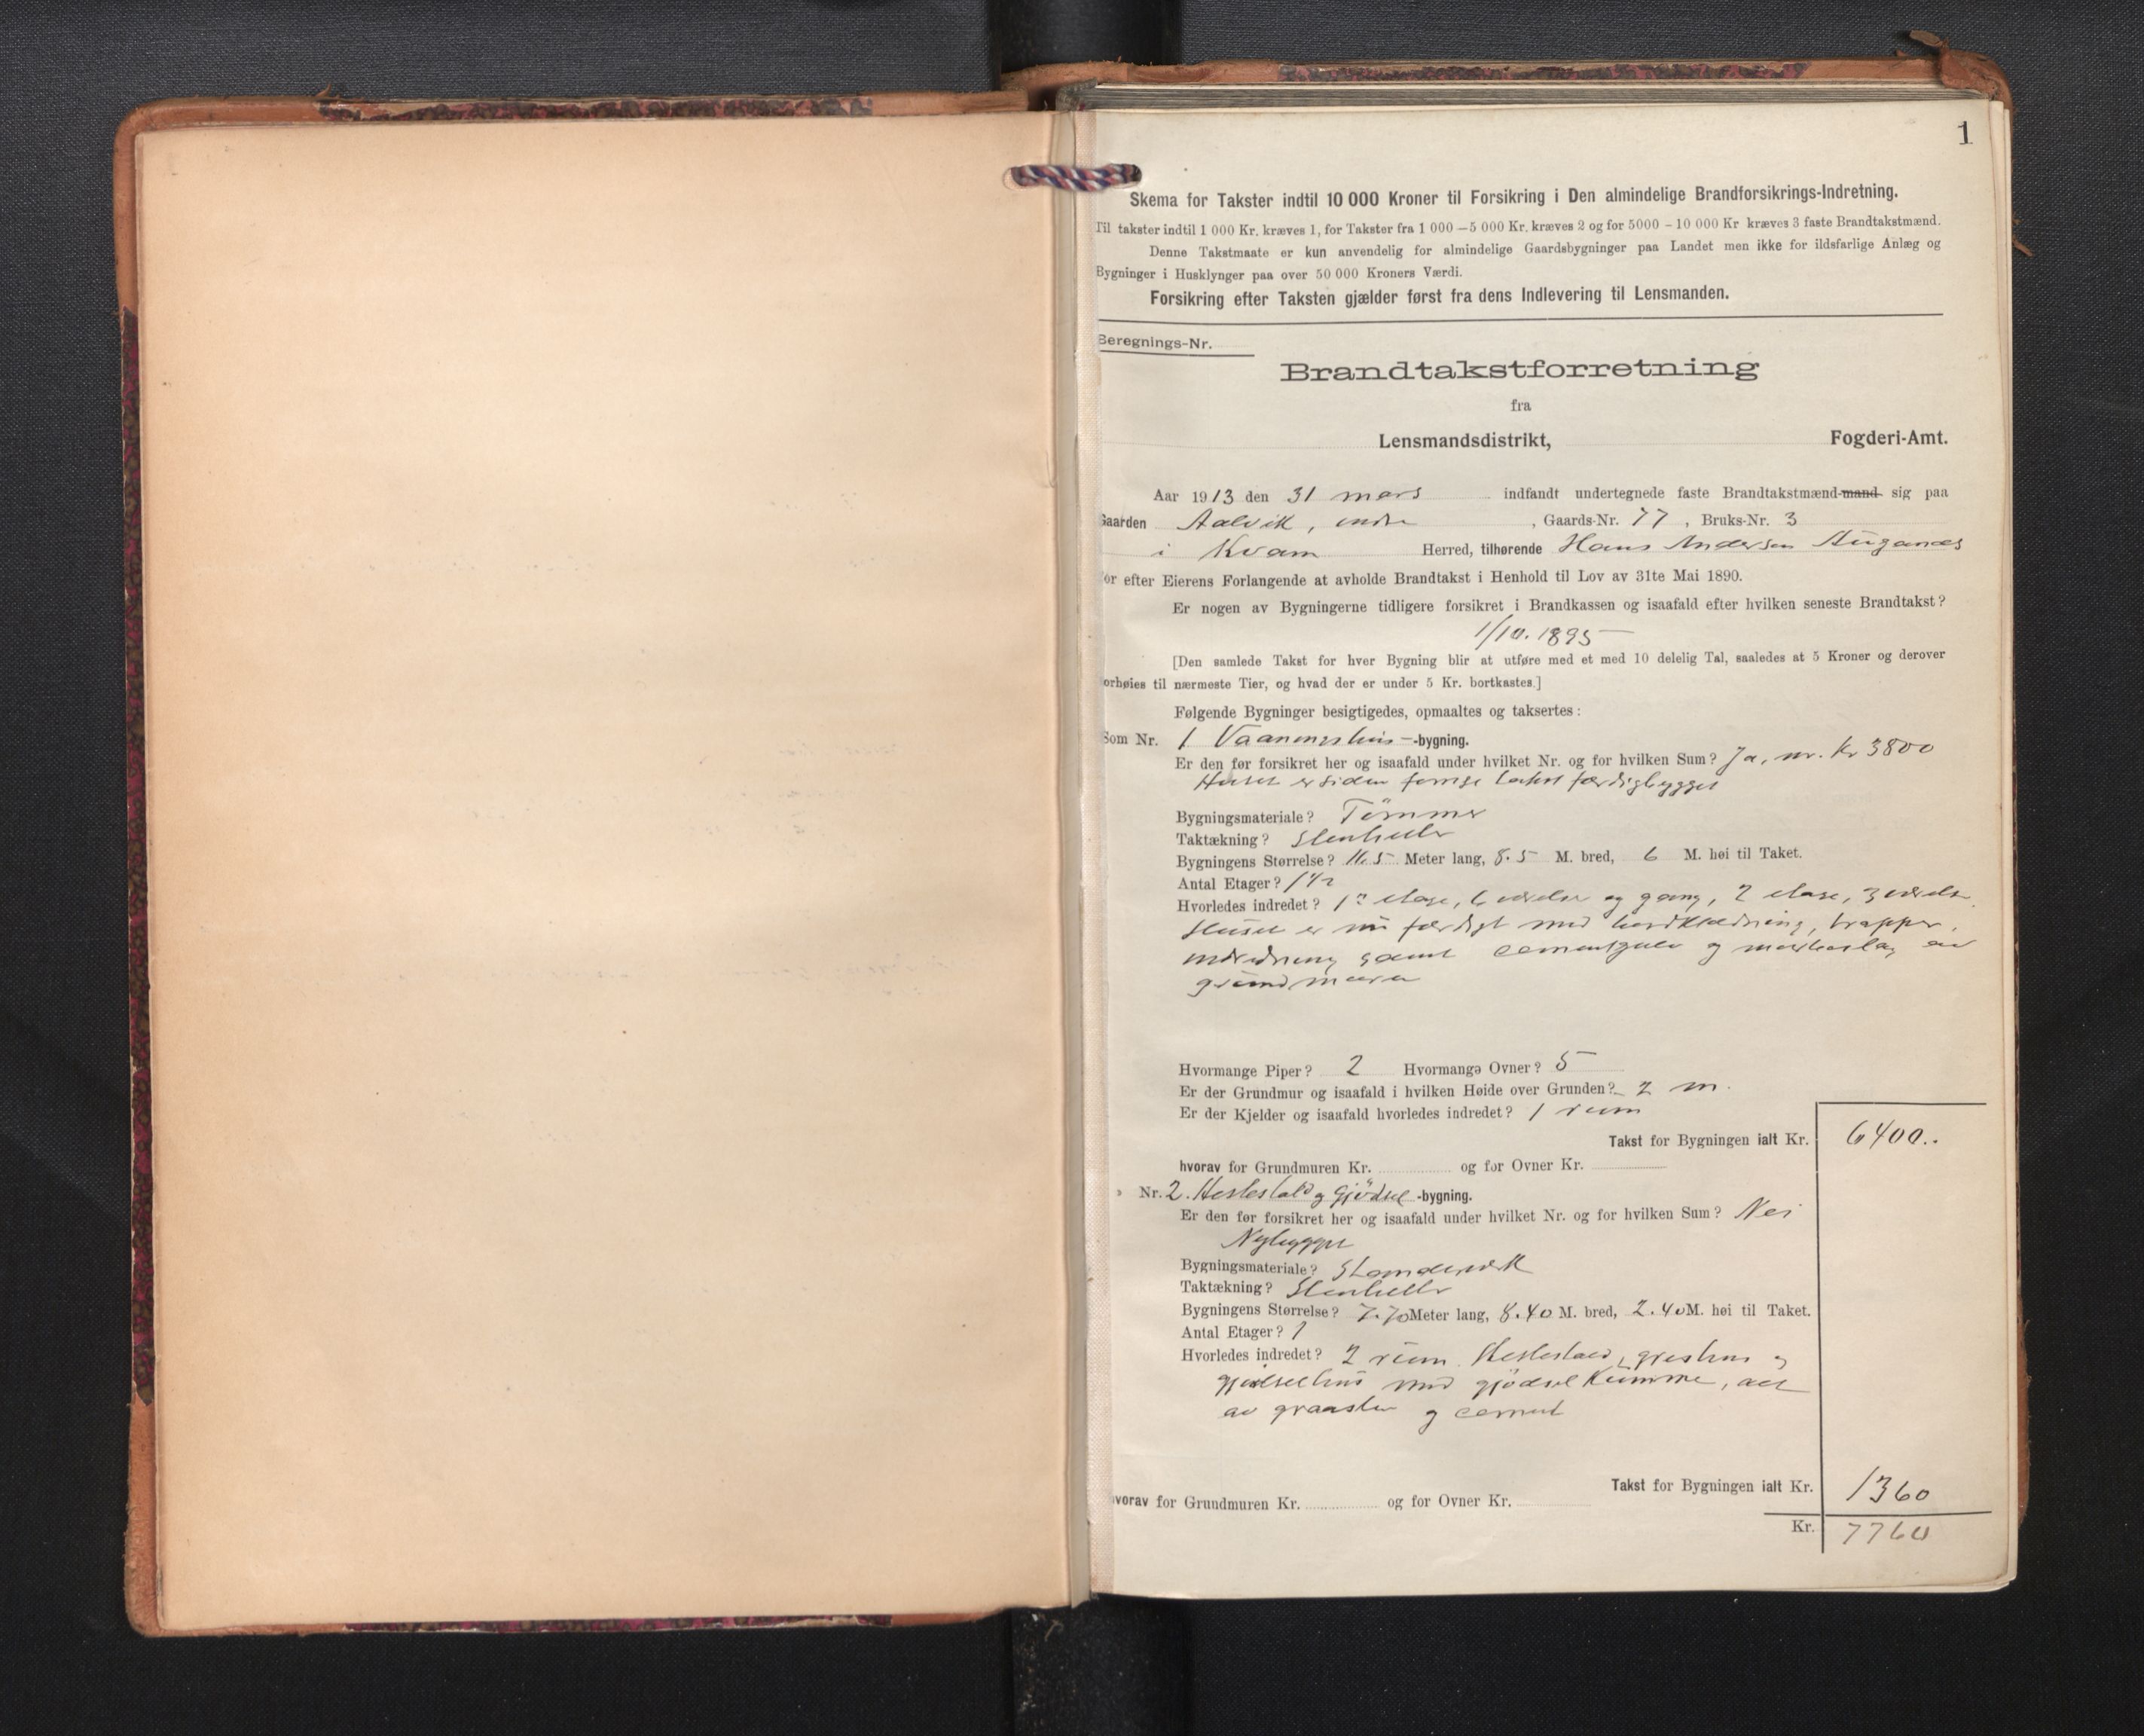 1
Skema for Takster indtil 10 000 Kroner til Forsikring i Den almindelige Brandforsikrings-Indretning.
Til takster indtil 1 000 Kr. kræves 1, for Takster fra 1 000 – 5 000 Kr. kræves 2 og for 5000 – 10 000 Kr kræves 3 faste Brandtakstmænd.
Denne Takstmaate er kun anvendelig for almindelige Gaardsbygninger paa Landet men ikke for ildsfarlige Anlæg og
Bygninger i Husklynger paa over 50 000 Kroners Værdi.
Forsikring efter Taksten gjælder først fra dens Indlevering til Lensmanden.
Beregnings-Nr.
Brandtakstforretning
fra
Lensmandsdistrikt, Fogderi-Amt.
Aar 1913 den 31 mars indfandt undertegnede faste Brandtakstmænd-mand sig paa
Gaarden Aalvik, indre, Gaards-Nr. 77, Bruks-Nr. 3
i Kvam Herred, tilhørende Hans Andersen
for efter Eierens Forlangende at avholde Brandtakst i Henhold til Lov av 31te Mai 1890.
Er nogen av Bygningerne tidligere forsikret i Brandkassen og isaafald efter hvilken seneste Brandtakst?
1/10. 1895
[Den samlede Takst for hver Bygning blir at utføre med et med 10 delelig Tal, saaledes at 5 Kroner og derover
forhøies til nærmeste Tier, og hvad der er under 5 Kr. bortkastes.]
Følgende Bygninger besigtigedes, opmaaltes og taksertes:
Som Nr. 1 Vaaningshus-bygning.
Er den før forsikret her og isaafald under hvilket Nr. og for hvilken Sum? Ja, nr. Kr 3800
Huset er siden forrige takst færdigbygget
Bygningsmateriale? Tømmer
Taktækning? Stenheller
Bygningens Størrelse? 11.5 Meter lang, 8.5 M. bred, 6 M. høi til Taket.
Antal Etager? 1 1/2
Hvorledes indredet? 1ste etage, 6 værelser og gang, 2 etage, 3 værelser.
Huset er nu færdigt med bordklædning, trapper,
indredning samt cementgulv og av
grundmuren
Hvormange Piper? 2 Hvormange Ovner? 5
Er der Grundmur og isaafald i hvilken Høide over Grunden? 2 m.
Er der Kjelder og isaafald hvorledes indredet? 1 rum
Takst for Bygningen ialt Kr. 6400..
hvorav for Grundmuren Kr. og for Ovner Kr.
Nr. 2. Hestestald og Gjødsel-bygning.
Er den før forsikret her og isaafald under hvilket Nr. og for hvilken Sum? Nei
Nybygget
Bygningsmateriale? Standerverk
Taktækning? Stenheller
Bygningens Størrelse? 7.70 Meter lang, 8.40 M. bred, 2.40 M. høi til Taket.
Antal Etager? 1
Hvorledes indredet? 2 rum. Hestestald, grishus og
gjødselhus med gjødselkumme, alt
av graasten og cement
Takst for Bygningen ialt Kr. 1360
hvorav for Grundmuren Kr. og for Ovner Kr.
Kr. 7760